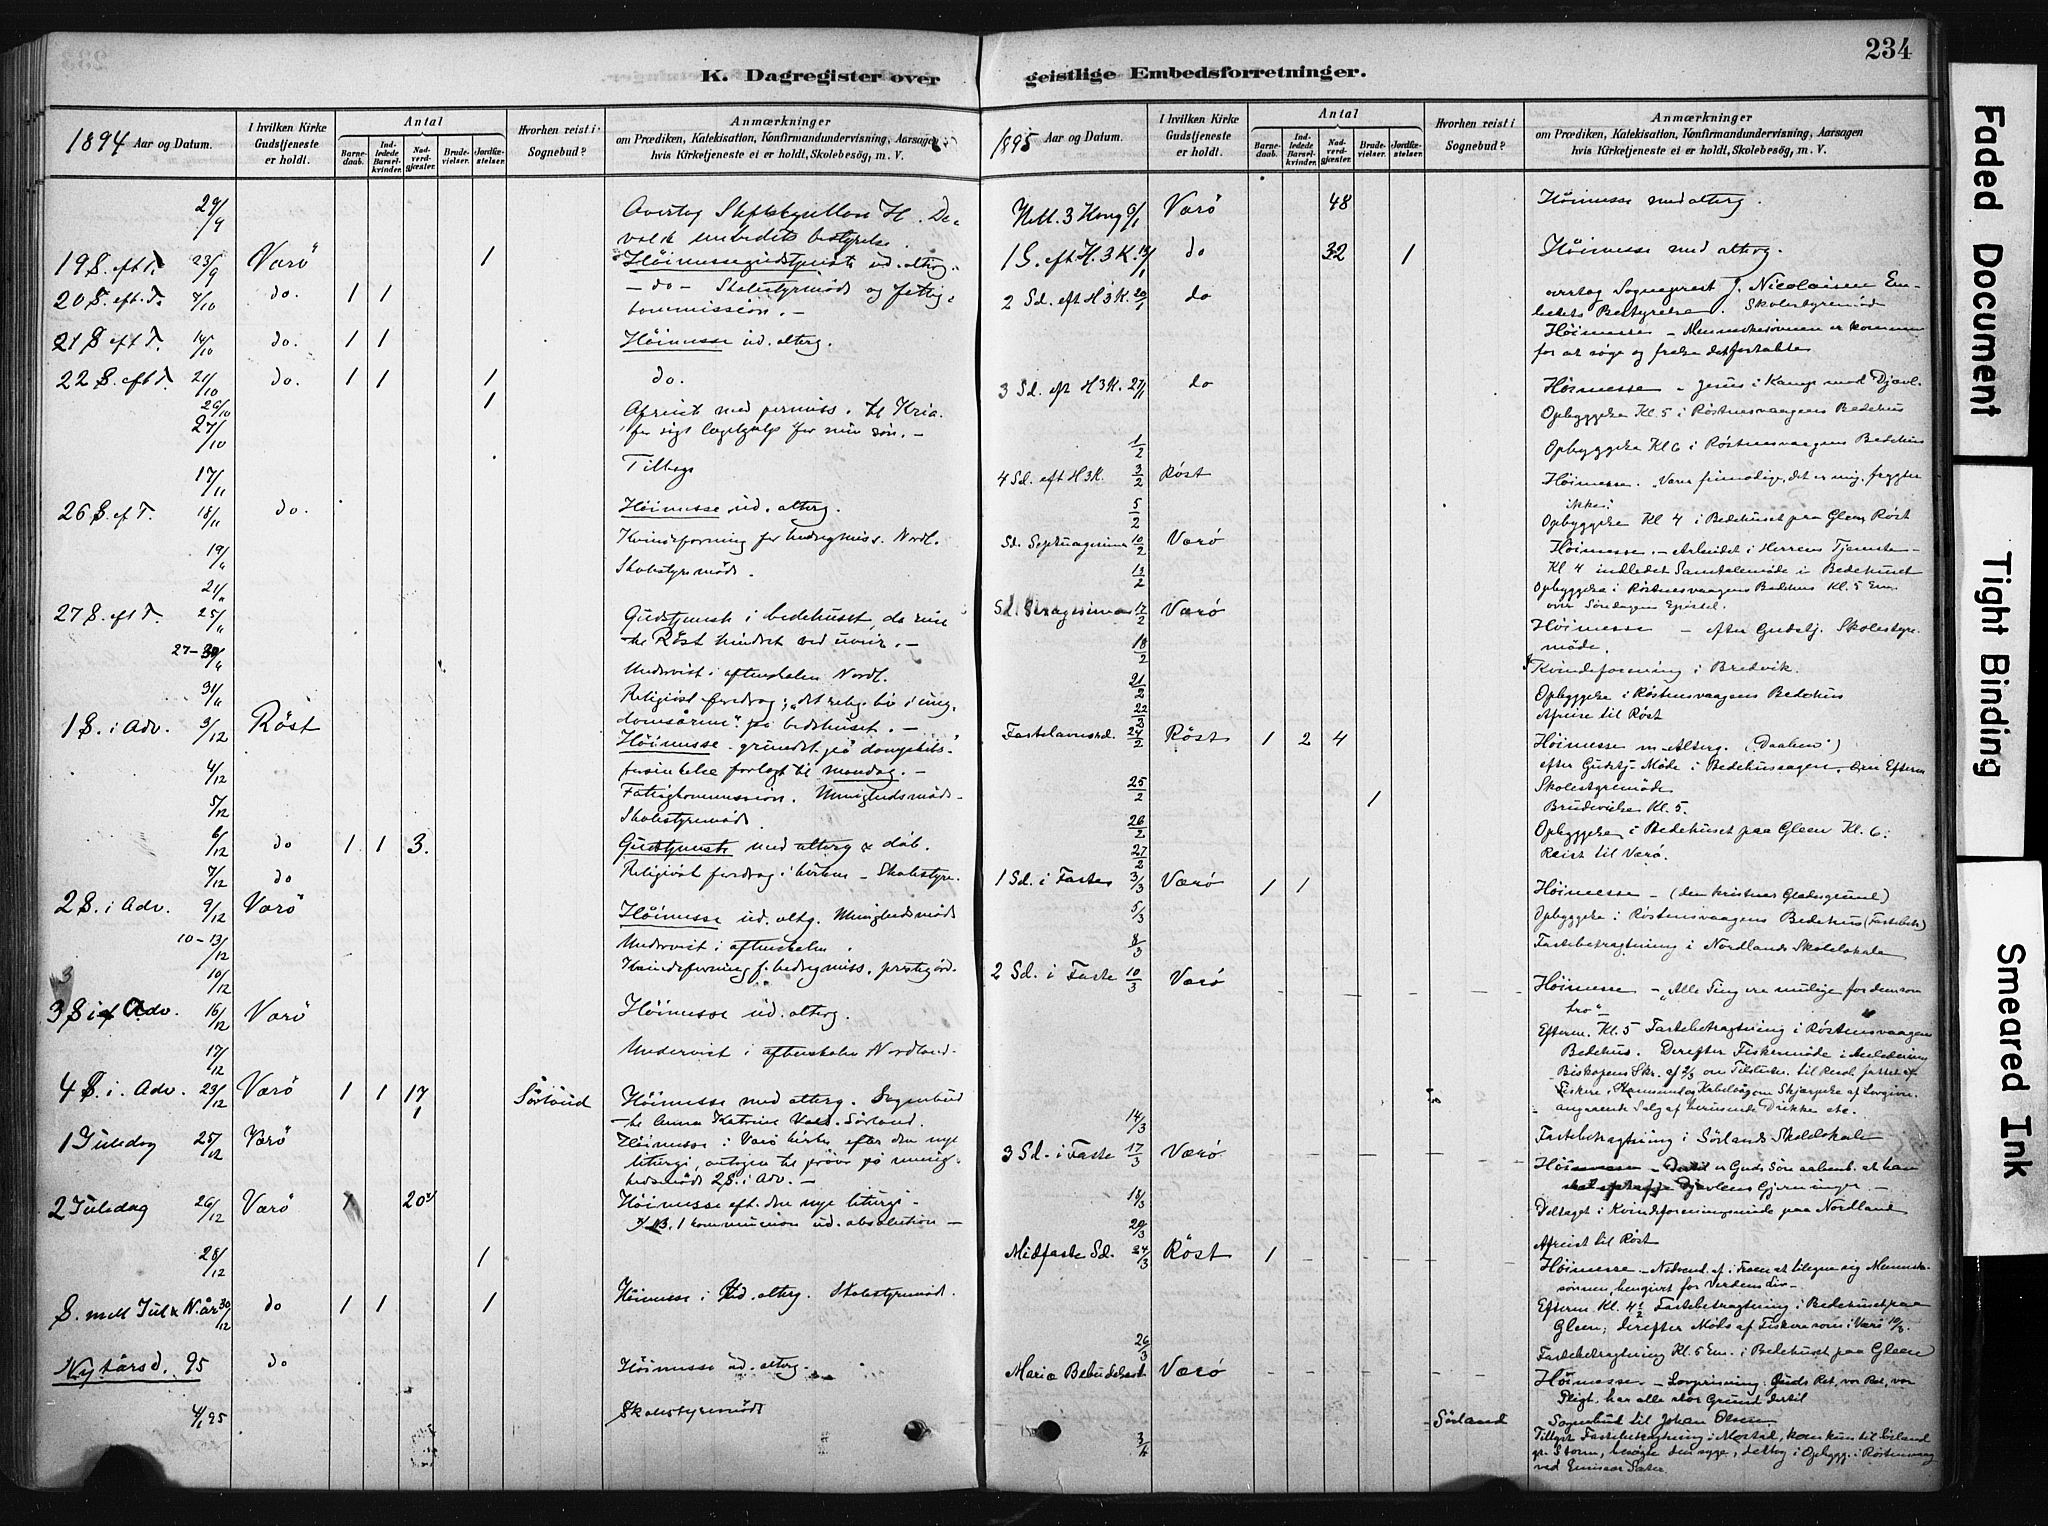 234
K. Dagregister over
geistlige Embedsforretninger.
1894 Aar og Datum.
I hvilken Kirke Gudstjeneste er holdt.
Antal
Barnedaab.
Indledede Barselkvinder.
Nadverdgjester.
Brudevielser.
Jordfæstelser.
Hvorhen reist i Sognebud?
Anmærkninger
om Prædiken, Katekisation, Konfirmandundervisning, Aarsagen
hvis Kirketjeneste ei er holdt, Skolebesøg, m. V.
29/9 Overtog H.
embedets bestyrelse.
19 S. eft T. 23/9 Værö 1 Höimessegudstjeneste ud. alterg.
20 S. eft. T. 7/10 do. 1 1 - do - Skolestyremöde og fattig-
kommission. -
21 S eft T. 14/10 do. 1 1 Höimesse ud. alterg.
22 S. eft T. 21/10 do. 1 1 1 do.
26/10 1
27/10 Afreist med permiss. til
for min sön. -
17/11 Tilbage
26 S. ef T. 18/11 do. Höimesse ud. alterg.
19/11 Kvindeforening for hedningmiss. Nordl.
21/11 Skolestyremöde.
27 S. eft T. 25/11 Gudstjeneste i bedehuset, da reise
til Röst hindret ved uveir. -
27-30/11 Undervist i aftenskolen Nordl.
31/11 Religiöst foredrag; "det relig. liv i ung-
domsårene" på bedehuset. -
1 S. i Adv. 3/12 Röst Höimesse grundet på dampskibs-
forsinkelse forlagt til mandag. -
4/12 Fattigkommission. Menighedsmöde.
5/12 Skolestyremöde.
6/12 do 1 1 3. Gudstjeneste med alterg & dåb.
7/12 do Religiöst foredrag i kirken - Skolestyre.
2 S. i Adv. 9/12 Værö Höimesse ud. altg. Menighedsmöde
10-13/12 Undervist i aftenskolen.
10/12 Kvindeforening f. hedngmiss. prestegård.
3 S i Adv. 16/12 Værö Höimesse ud. alterg.
17/12 Undervist i aftenskolen Nordland.
4 S. i. Adv. 23/12 Værö 1 1 17 1 Sörland Höimesse med alterg. Sognebud
til Anna Katrine Sörland.
1 Juledag 25/12 Værö Höimesse i Værö kirke efter den nye
liturgi, antagen til pröve på menig-
hedsmöde 2 S. i Adv. -
2 Juledag 26/12 Værö 1 20 Höimesse eft. den nye liturgi.
NB. 1 kommunion ud. absolution -
28/12 1
S. mell Jul & N.år 30/12 do 1 1 1 Höimesse ud. alterg. Skolestyremöd.
Nytårsd. 95 do Höimesse ud. alterg.
4/1 95 Skolestyremöde
1895 Aar og Datum.
I hvilken Kirke Gudstjeneste er holdt.
Antal
Barnedaab.
Indledede Barselkvinder.
Nadverdgjester.
Brudevielser.
Jordfæstelser.
Hvorhen reist i Sognebud?
Anmærkninger
om Prædiken, Katekisation, Konfirmandundervisning, Aarsagen
hvis Kirketjeneste ei er holdt, Skolebesøg, m. V.
Hell. 3 Kong 6/1 Værö 48 Höimesse med alterg.
1 S. eft H. 3 K. 13/1 do 32 1 Höimesse med alterg.
2 Sd. eft H 3 K. 20/1 do overtog Sogneprest J. Nicolaisen Em-
bedets Bestyrelse. Skolestyremöde
Höimesse - Menneskesönnen er kommen
for at søge og frelse det fortabte
3 Sd. eft H 3 K. 27/1 do Höimesse - Jesus i Kamp med Djævl.
Opbyggelse Kl. 5 i Røstnesvaagens Bedehus
1/2 Opbyggelse Kl 6 i Røstnesvaagens Bedehus
4 Sd. eft H 3 K. 3/2 Røst Höimesse. "Værer frimodige, det er mig, frygter
ikke."
5/2 Opbyggelse Kl 4 i Bedehuset paa Gleen Røst
Sd. Septuagesima 10/2 Værø Höimesse. - Arbeidet i Herrens Tjeneste -
Kl 4 indledet Samtalemøde i Bedehuset
13/2 Opbyggelse i Røstnesvaagens Bedehus Kl. 5 Em.
over Søndagens Epistel.
Sd. Sexagesima 17/2 Værø Höimesse - efter Gudstj. Skolestyre-
møde.
18/2 Kvindeforening i Bredvik.
21/2 Opbyggelse i Røstnesvaagens Bedehus
22/2 Afreise til Røst
Fastelavnssd. 24/2 Røst 1 2 4 Höimesse m Alterg. (Daaben)
efter Gudstj. Møde i Bedehussagen.
25/2 1 Skolestyremøde
Brudevielse Kl. 5.
26/2 Opbyggelse i Bedehuset paa Gleen Kl. 6.
27/2 Reist til Værø.
1 Sd. i Faste 3/3 Værø 1 1 Höimesse - (den kristnes )
5/3 Opbyggelse i Røstnesvaagens Bedehus (Fastebetr)
8/3 Fastebetragtning i Nordlands Skolelokale
2 Sd. i Faste 10/3 Værø Höimesse - "Alle Ting ere mulige for dem som
tro" -
Efterm. Kl. 5 Fastebetragtning i Røstnesvaagens
Bedehus. Derefter Fiskermøde i Anledning
Biskopens Skr. af 2/3 om Tilslutn. til Resol. fattet af
Fiskere i Skjærpelse af Lovgivn.
angaaende Salg af berusende Drikke etc.
14/3 Fastebetragtning i Sørlands Skolelokale
3 Sd. i Faste 17/3 Værø Höimesse - er Guds Søn aabenb. at han
skal Djævlens Gjerninger. -
18/3 Deltaget i Kvindeforeningsmøde paa Nordland
20/3 Afreist til Røst
Midfaste Sd. 24/3 Røst 1 Höimesse - Nødvend. af i Troen at tilegne sig Menneske-
sønnen hengivet for Verdens Liv -
Efterm Kl. 4½ Fastebetragtning i Bedehuset paa
Gleen, derefter Møde af Fiskere som i Værø 10/3.
26/3 Fastebetragtning Kl. 5 Em. i Bedehuset paa Gleen
Maria Bebudelsest Værø Höimesse - Lovprisning: Guds Ret, vor Ret, vor
Pligt, har alle stor Grund dertil
Sørland Sognebud til Johan Olsen
Tillyst Fastebetragtning i
Storm, besøgte den syge, deltog i Opbygg. i Røstnesvaag
ved Emissær
Faded Document
Tight Binding
Smeared Ink